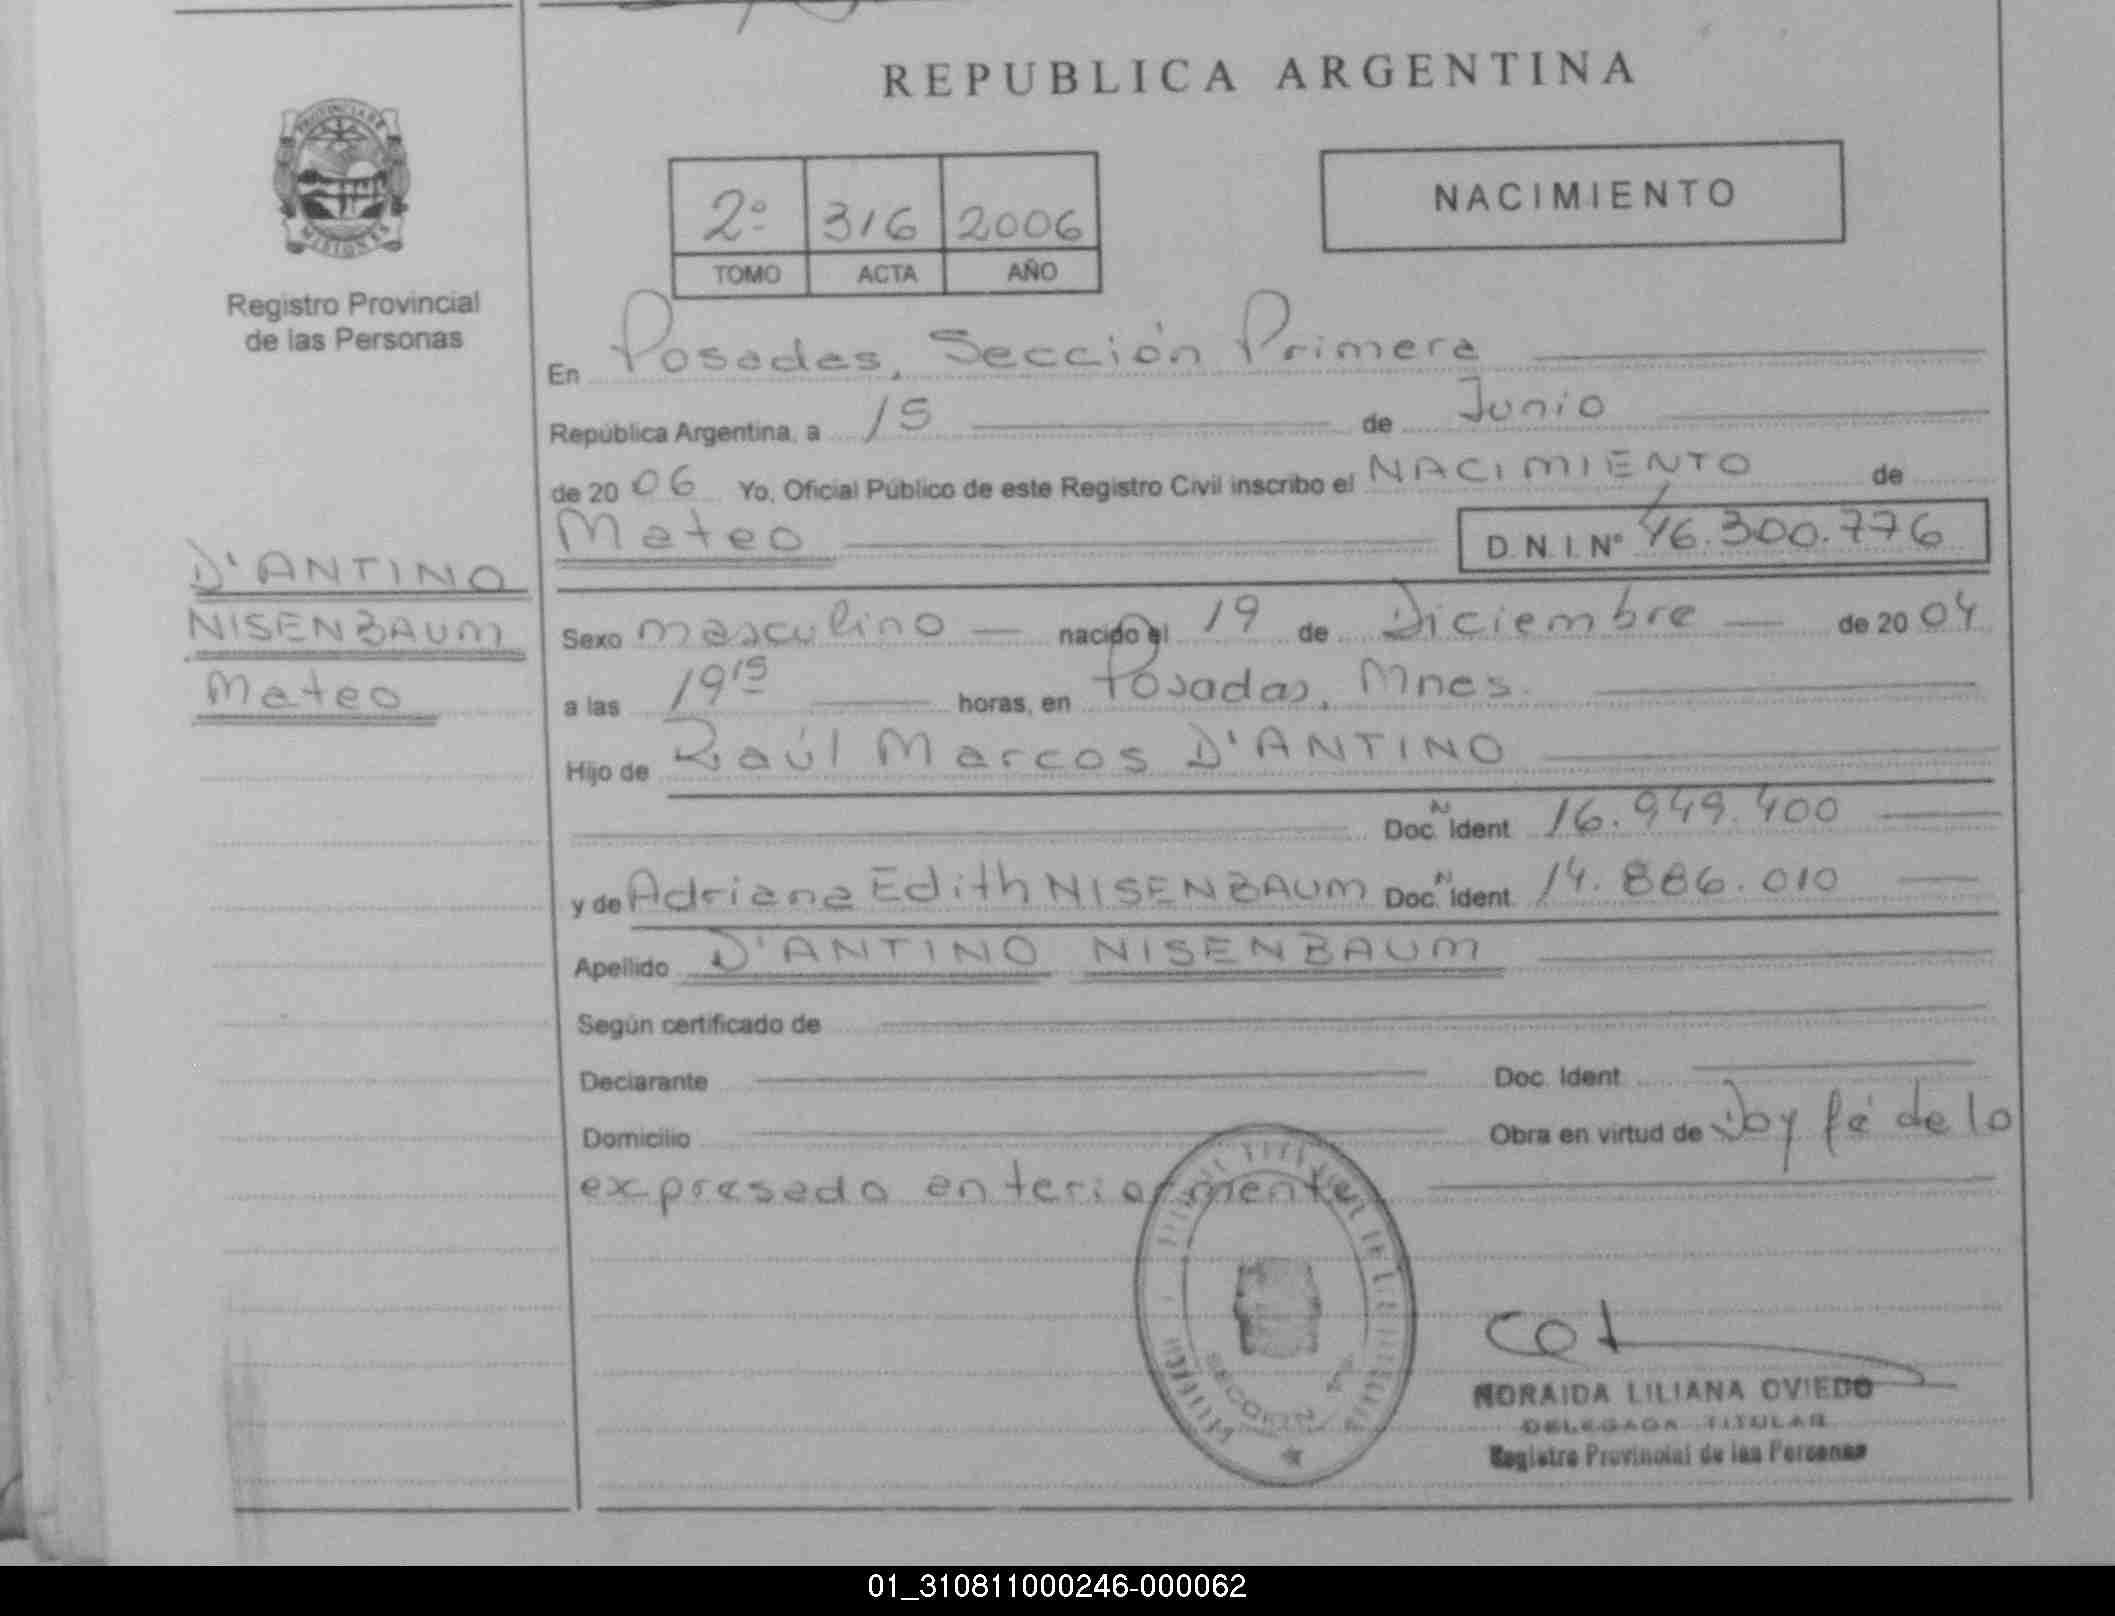 REPUBLICA ARGENTINA
PROVINCIA DE
MISIONES
Registro Provincial
de las Personas
2º 316 2006
TOMO ACTA AÑO
NACIMIENTO
En Posadas, Sección Primera
República Argentina, a 15 de Junio
de 2006 Yo, Oficial Público de este Registro Civil inscribo el NACIMIENTO de
Mateo D.N.I. Nº 46.300.776
D'ANTINO
NISENBAUM
Mateo
Sexo masculino nacido el 19 de Diciembre de 2004
a las 19¹⁵ horas, en Posadas, Mnes.
Hijo de Raúl Marcos D'ANTINO
Doc. N Ident 16.949.400
y de Adriana Edith NISENBAUM Doc. N Ident. 14.886.010
Apellido D'ANTINO NISENBAUM
Según certificado de
Declarante Doc. Ident
Domicilio Obra en virtud de Doy fé de lo
expresado anteriormente
SECCION 1ra
NORAIDA LILIANA OVIEDO
DELEGADA TITULAR
Registro Provincial de las Personas
01_310811000246-000062